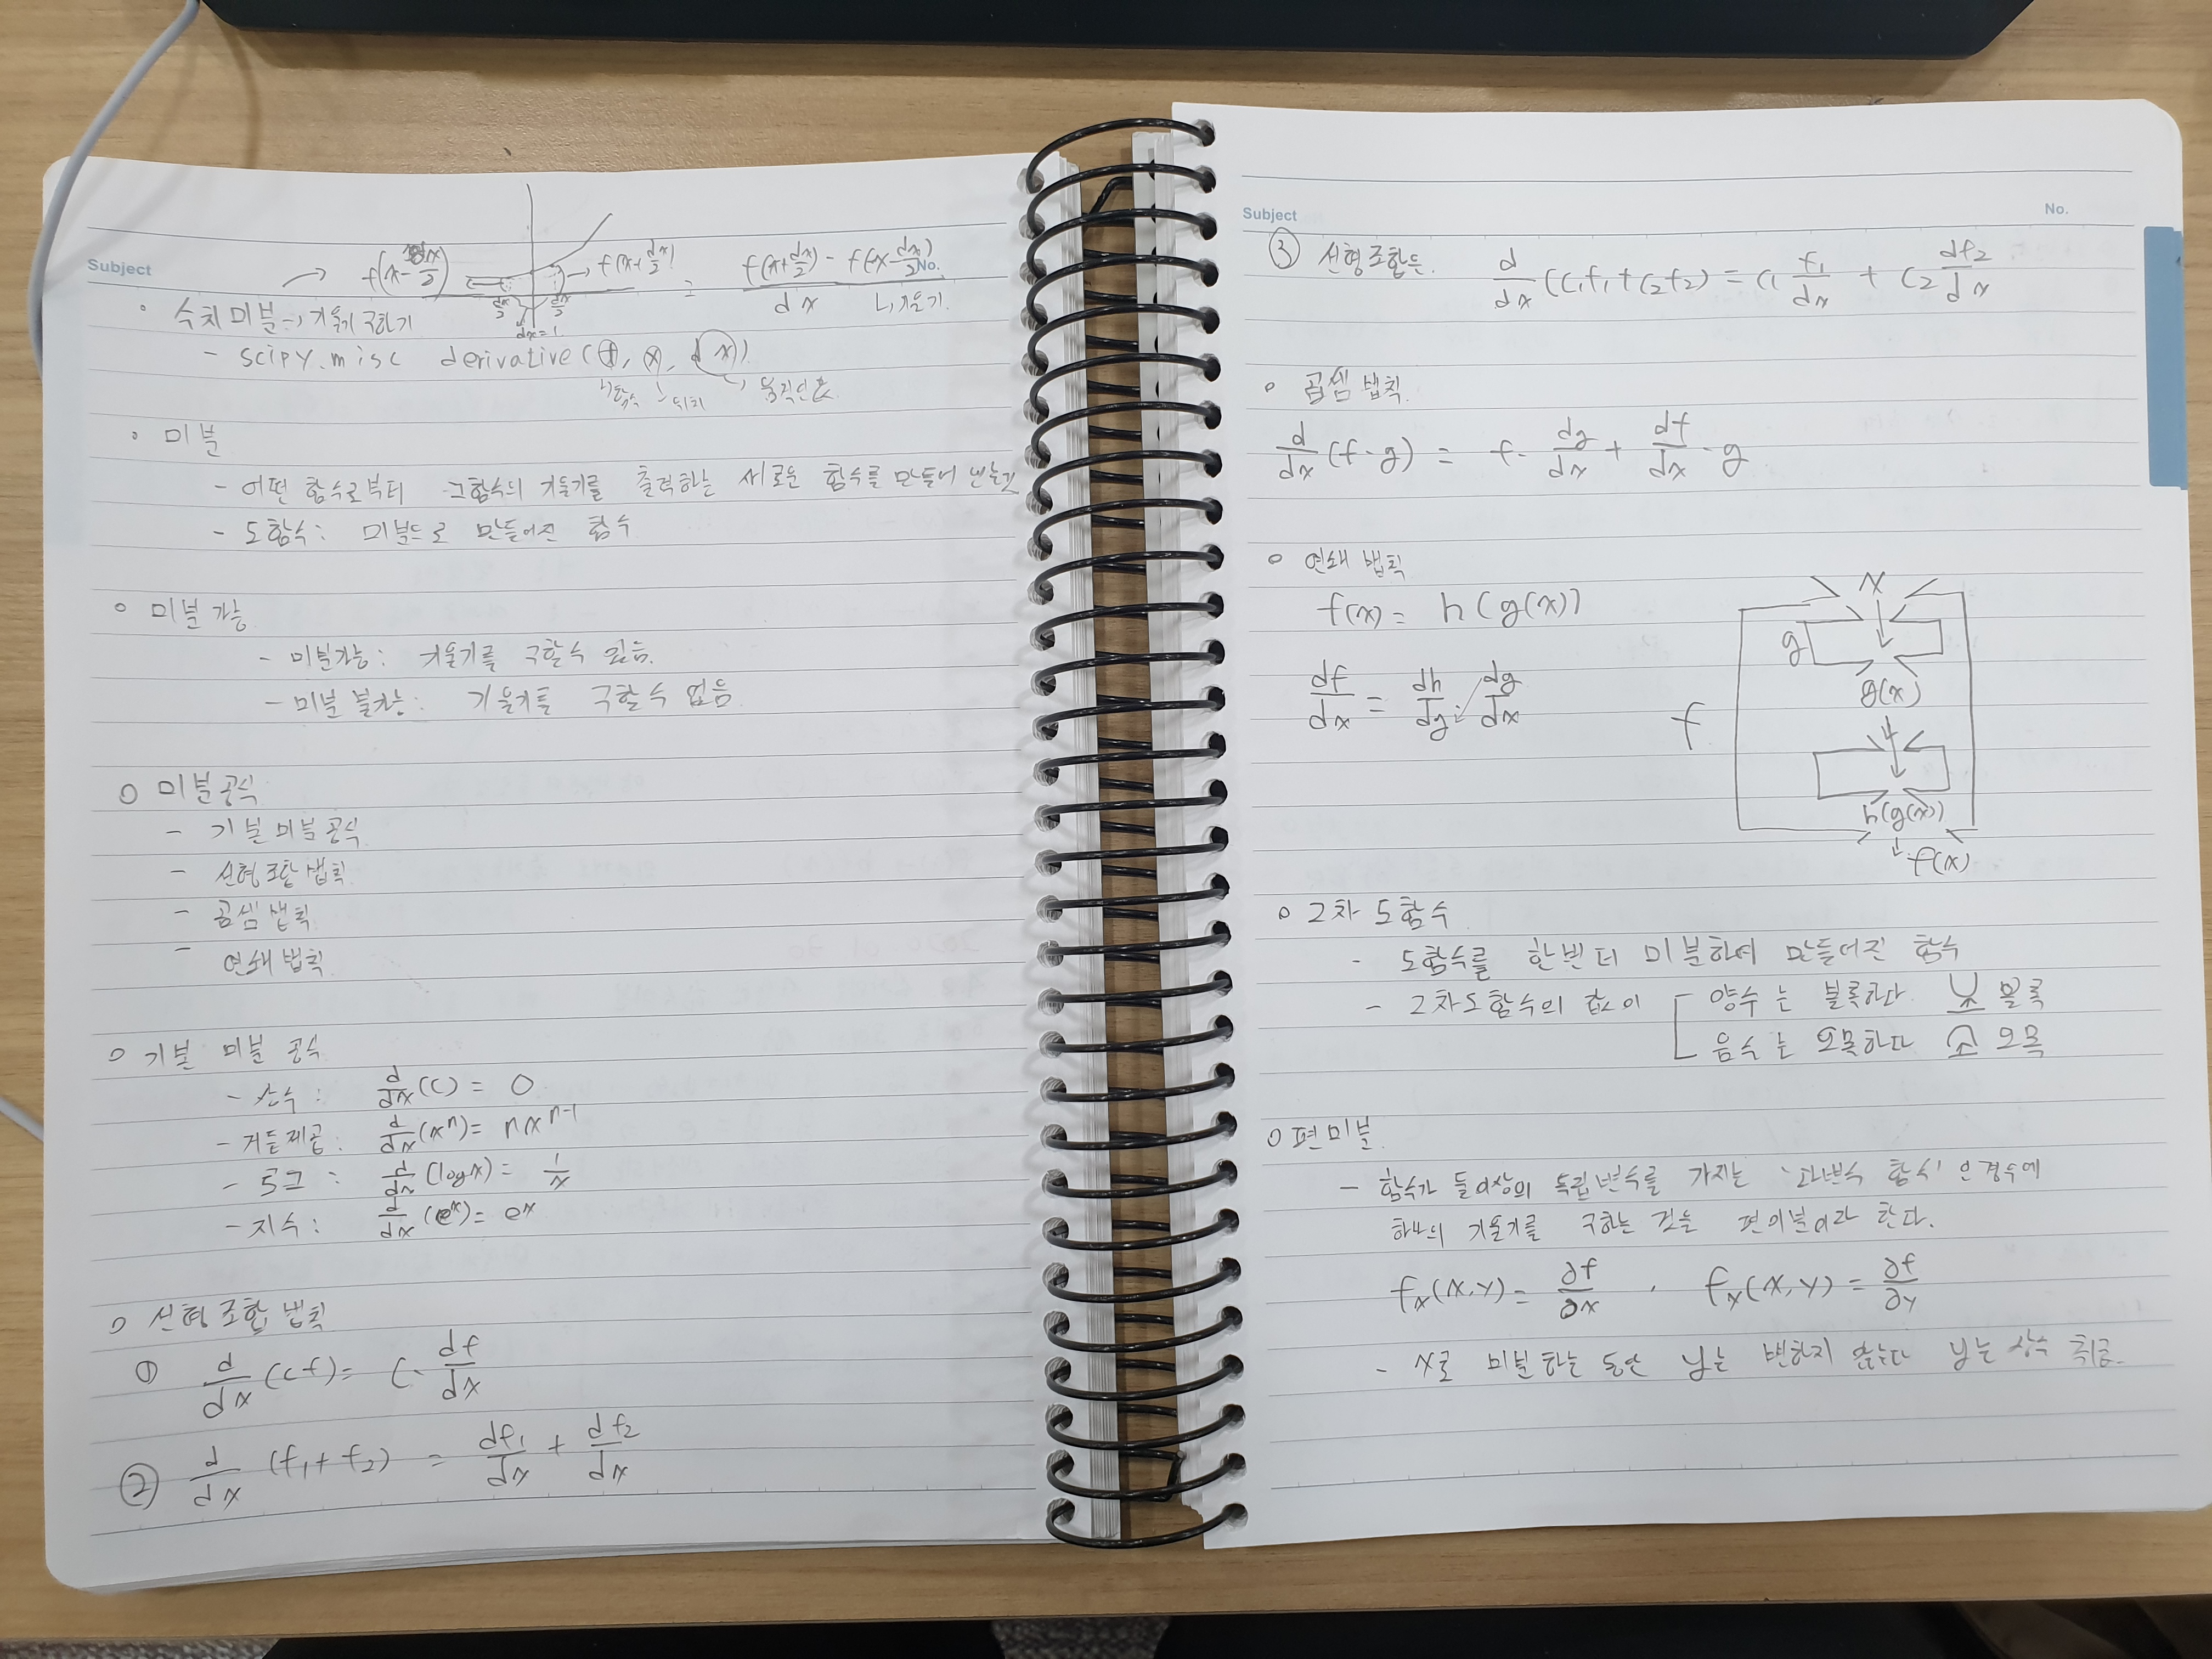 Subject
f(x-dx/2) f(x+dx/2) = f(x+dx/2) - f(x-dx/2) / dx No.
dx/2 dx/2 dx=1 ㄴ, 기울기.
◦ 수치미분 → 기울기 구하기
- scipy.misc derivative(f, x, dx)
ㄴ함수 ㄴ위치
◦ 미분
- 어떤 함수로부터 그함수의 기울기를 출력하는 새로운 함수를 만들어 내는것
- 도함수: 미분으로 만들어진 함수
◦ 미분가능
- 미분가능: 기울기를 구할 수 있음.
- 미분 불가능: 기울기를 구할 수 없음
◦ 미분공식
- 기본 미분 공식
- 선형조합 법칙
- 곱셈 법칙
- 연쇄 법칙
◦ 기본 미분 공식
- 상수: d/dx (c) = 0
- 거듭제곱: d/dx (xⁿ) = nxⁿ⁻¹
- 로그: d/dx (log x) = 1/x
- 지수: d/dx (eˣ) = eˣ
◦ 선형 조합 법칙
① d/dx (cf) = c· df/dx
② d/dx (f₁+f₂) = df₁/dx + df₂/dx
Subject No.
③ 선형조합은. d/dx (c₁f₁+c₂f₂) = c₁ f₁/dx + c₂ df₂/dx
◦ 곱셈 법칙.
d/dx (f·g) = f· dg/dx + df/dx ·g
◦ 연쇄 법칙
f(x) = h(g(x))
df/dx = dh/dg · dg/dx
x
g
g(x)
f
h(g(x))
f(x)
◦ 2차 도함수
- 도함수를 한번더 미분하여 만들어진 함수
- 2차도함수의 값이 양수는 볼록하다 볼록
음수는 오목하다 오목
◦ 편미분.
- 함수가 둘이상의 독립변수를 가지는 '다변수 함수' 인경우에
하나의 기울기를 구하는 것을 편미분이라 한다.
fx(x,y) = ∂f/∂x , fx(x,y) = ∂f/∂y
- x로 미분하는 동안 y는 변하지 않는다 y는 상수 취급.